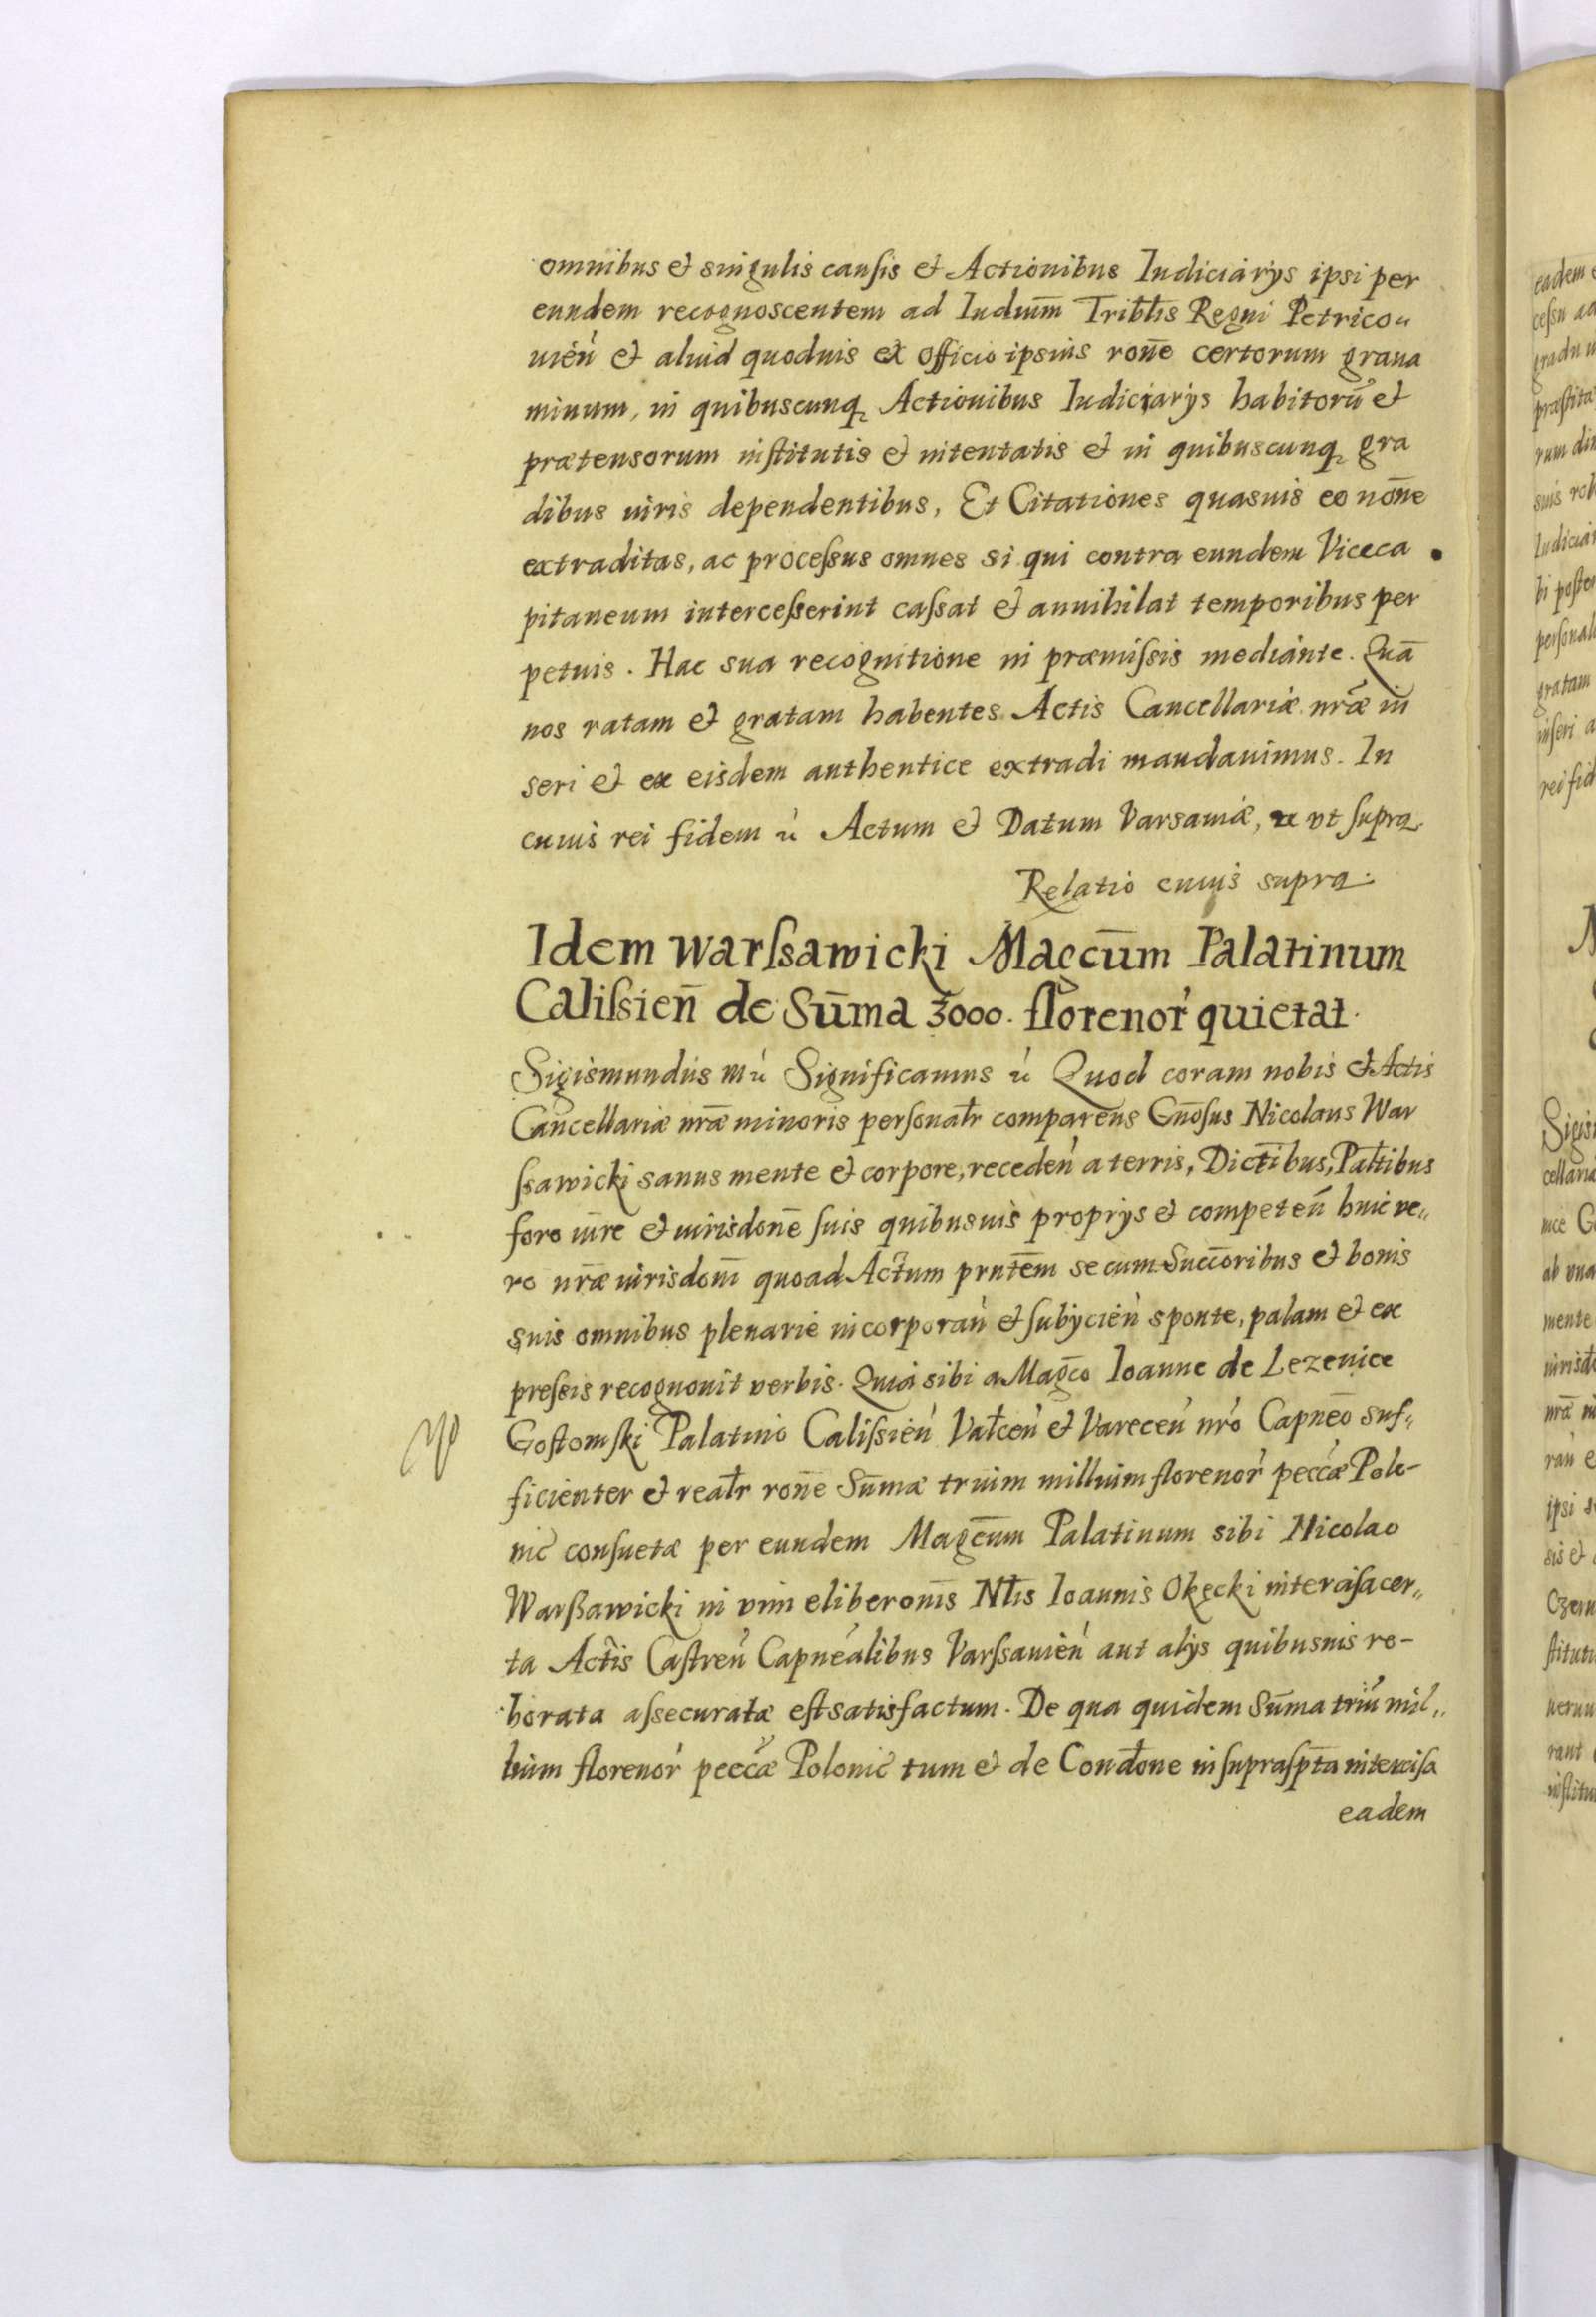 omnibus et singulis causis et Actionibus Iudiciarys ipsi per
eundem recognoscentem ad Iudiūm Tribłis Regni Petrico„
uień et aliud quoduis ex officio ipsius rone certorum graua
minum, in quibuscunq Actionibus Iudiciarys habitorū et
prætensorum institutis et intentatis et in quibuscunq gra
dibus iuris dependentibus, Et Citationes quasuis eo nōne
extraditas, ac processus omnes si qui contra eundem Viceca
pitaneum intercesserint cassat et annihilat temporibus per
petuis. Hac sua recognitione in præmissis mediante. Quā
nos ratam et gratam habentes Actis Cancellariæ nrǣ in
seri et ex eisdem authentice extradi mandauimus. In
cuius rei fidem ń Actum et Datum Varsauiæ, ut supra.
Relatio cuius supra.
Idem Warssawicki Magcūm Palatinum
Calissień de Sūma 3000. florenor quietat.
Sigismundus mń Significamus ń Quod coram nobis et Actis
Cancellariæ nrǣ minoris personałr comparens Gnōsus Nicolaus War
ssawicki sanus mente et corpore, recedeń a terris, Dictībus, Pałtibus
foro iūre et iurisdone suis quibusuis proprys et competeń huic ve„
ro nrǣ iurisdoni quoad Actum prntēm se cum Succōribus et bonis
suis omnibus plenarie incorporań et subycień sponte, palam et ex
pressis recognouit verbis. Quia sibi a Magco Ioanne de Lezenice
Gostomski Palatino Calissień Vałceń et Vareceń nrō Capneō suf„
ficienter et reałr rone Sūmæ trium millium florenor peccæ Polo-
nic consuetæ per eundem Magcūm Palatinum sibi Nicolao
Warszawicki in vim eliberonis Nłis Ioannis Okęcki intercisa cer„
ta Actis Castreń Capnealibus Varssauień aut alys quibusuis ro-
borata assecuratæ est satisfactum. De qua quidem Sūma triū mil„
lium florenor peccæ Polonic tum et de Condone in supraspta intercisa
eadem